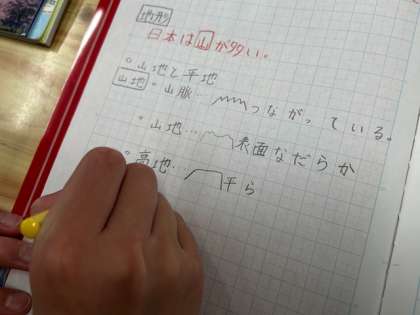 地形
日本は山が多い。
○山地と平地
山地 ○山脈…つながっている。
○山地…表面なだらか
○高地…平ら